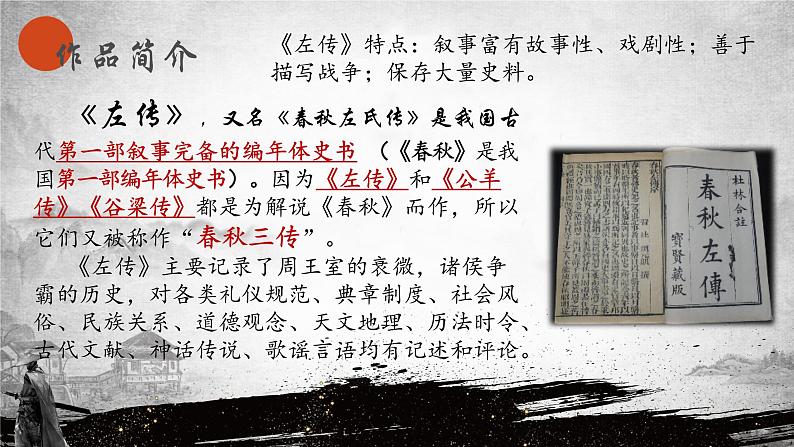 作品简介
《左传》特点：叙事富有故事性、戏剧性；善于
描写战争；保存大量史料。
《左传》，又名《春秋左氏传》是我国古
代第一部叙事完备的编年体史书（《春秋》是我
国第一部编年体史书）。因为《左传》和《公羊
传》《谷梁传》都是为解说《春秋》而作，所以
它们又被称作“春秋三传”。
《左传》主要记录了周王室的衰微，诸侯争
霸的历史，对各类礼仪规范、典章制度、社会风
俗、民族关系、道德观念、天文地理、历法时令、
古代文献、神话传说、歌谣言语均有记述和评论。
杜林合註
春秋左傳
寶賢藏版